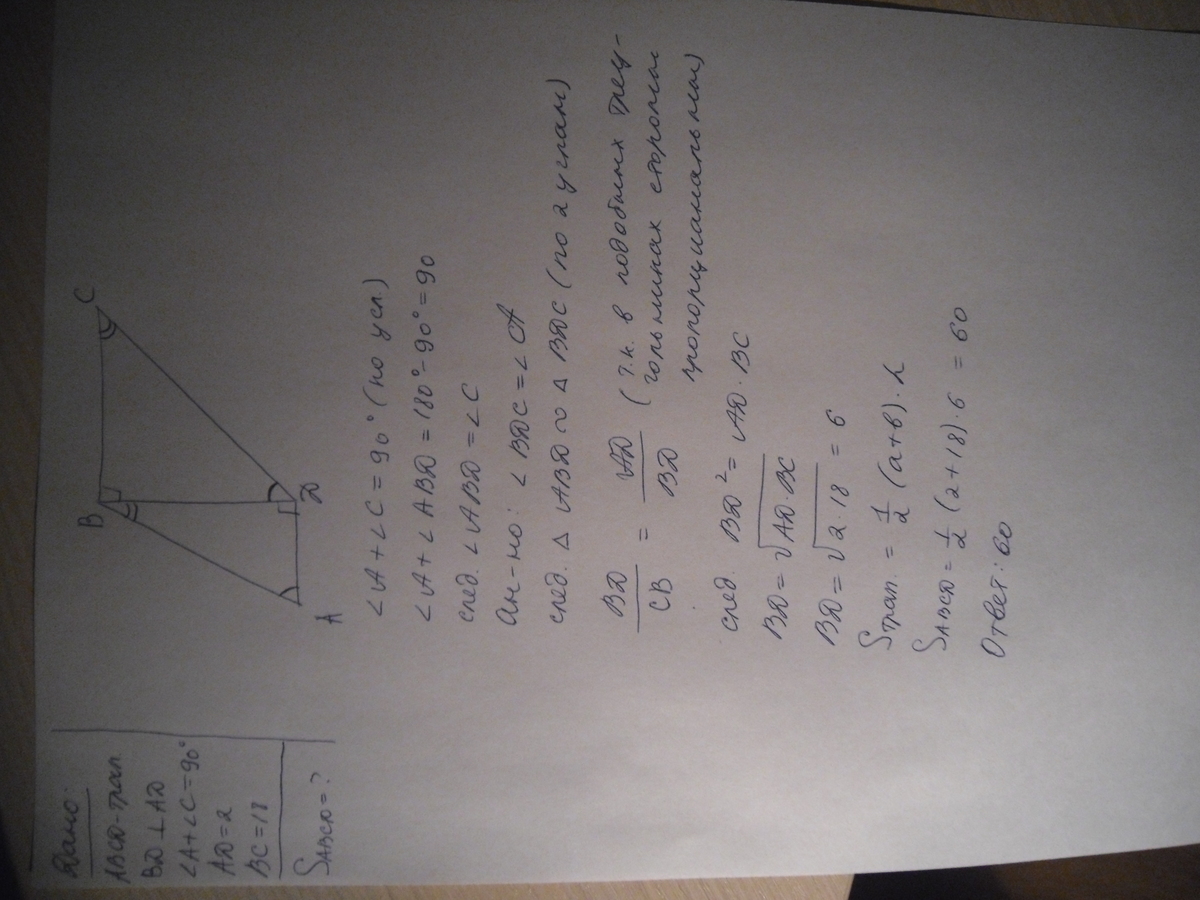 Дано:
ABCD-трап.
BD ⊥ AD
∠A+∠C=90°
AD=2
BC=18
S ABCD=?
B
C
A
D
∠A+∠C=90° (по усл.)
∠A+∠ABD=180°-90°=90
след. ∠ABD=∠C
Ан-но: ∠BDC=∠A
след. △ABD ∾ △BDC (по 2 углам)
BD/CB = AD/BD (т.к. в подобных треу-
гольниках стороны
пропорциональны)
след. BD²=AD·BC
BD=√AD·BC
BD=√2·18=6
Sтрап.=1/2(a+b)·h
SABCD=1/2(2+18)·6=60
Ответ: 60